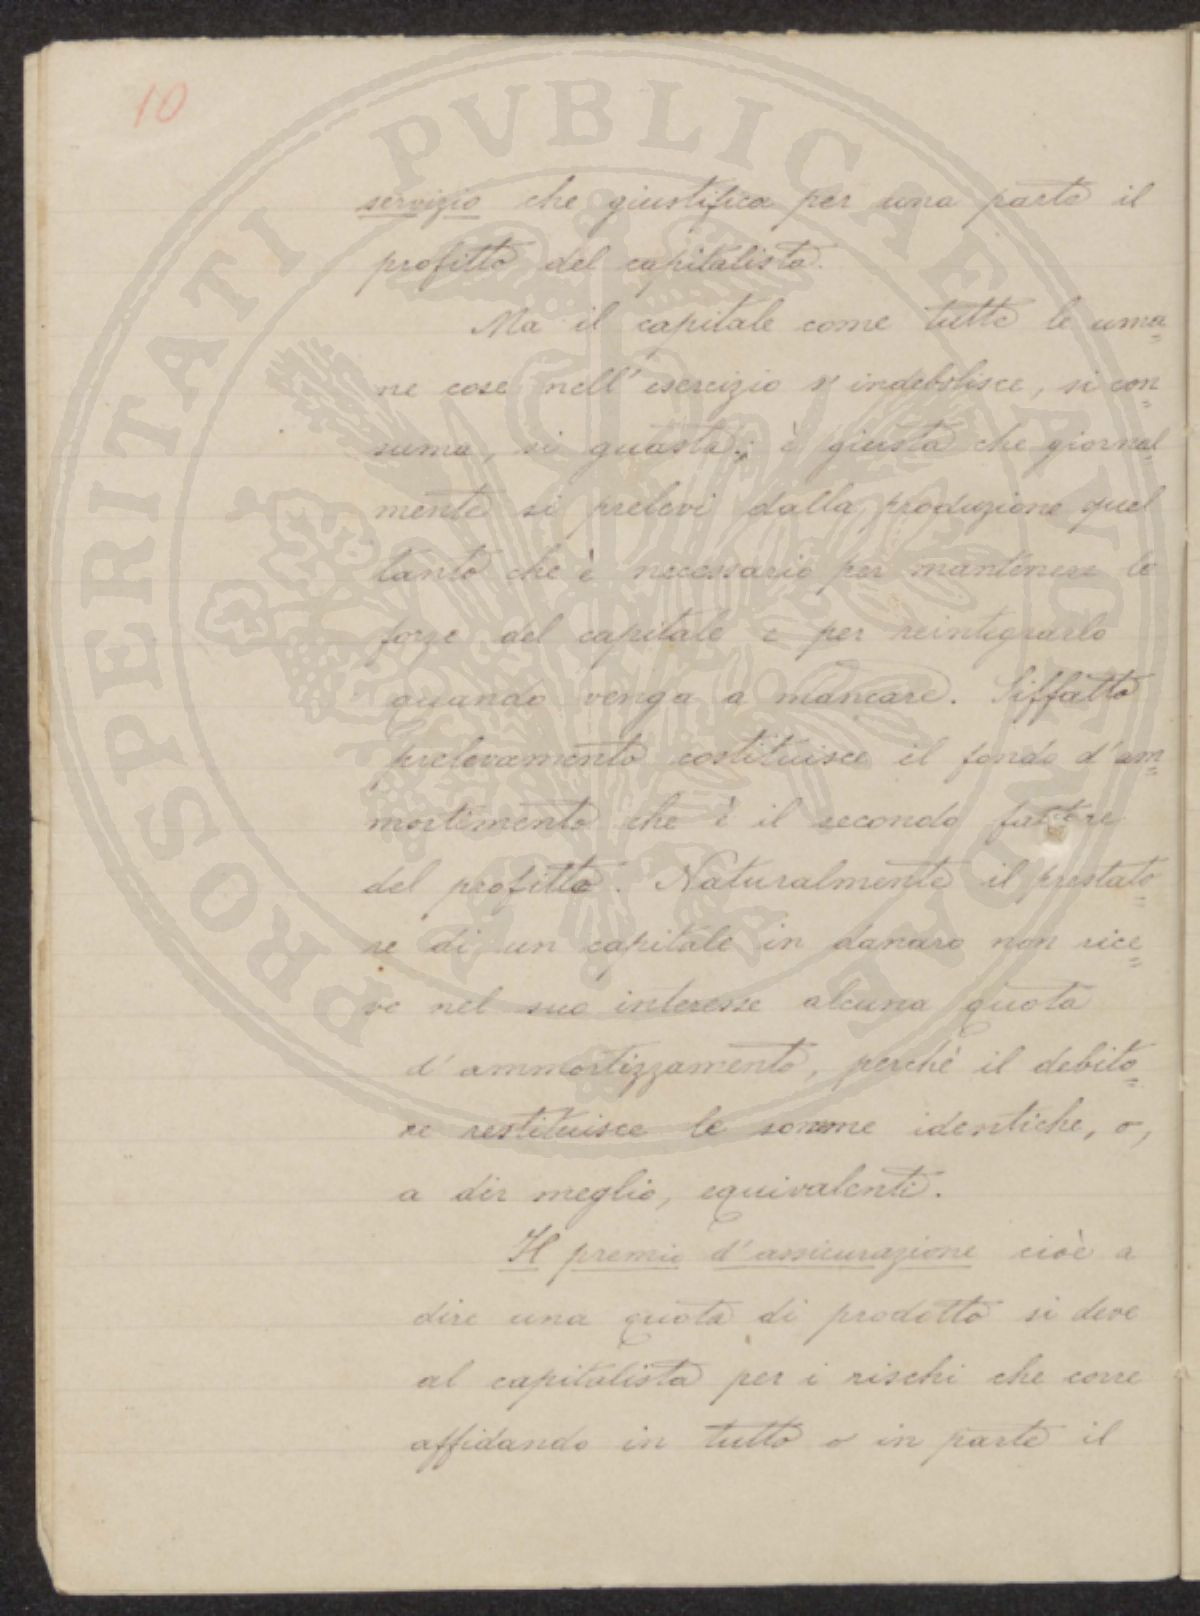 10
servizio che giustifica per una parte il
profitto del capitalista.
Ma il capitale come tutte le uma=
ne cose nell'esercizio s'indebolisce, si con=
suma, si guasta; è giusto che giornal=
mente si prelevi dalla produzione quel
tanto che è necessario per mantenere le
forze del capitale e per reintegrarlo
quando venga a mancare. Siffatto
prelevamento costituisce il fondo d'am=
mortimento che è il secondo fattore
del profitto. Naturalmente il prestato=
re di un capitale in danaro non rice=
ve nel suo interesse alcuna quota
d'ammortizzamento, perchè il debito=
re restituisce le somme identiche, o,
a dir meglio, equivalenti.
Il premio d'assicurazione cioè a
dire una quota di prodotto si deve
al capitalista per i rischi che corre
affidando in tutto o in parte il
PROSPERITATI PVBLICAE AVGENDAE